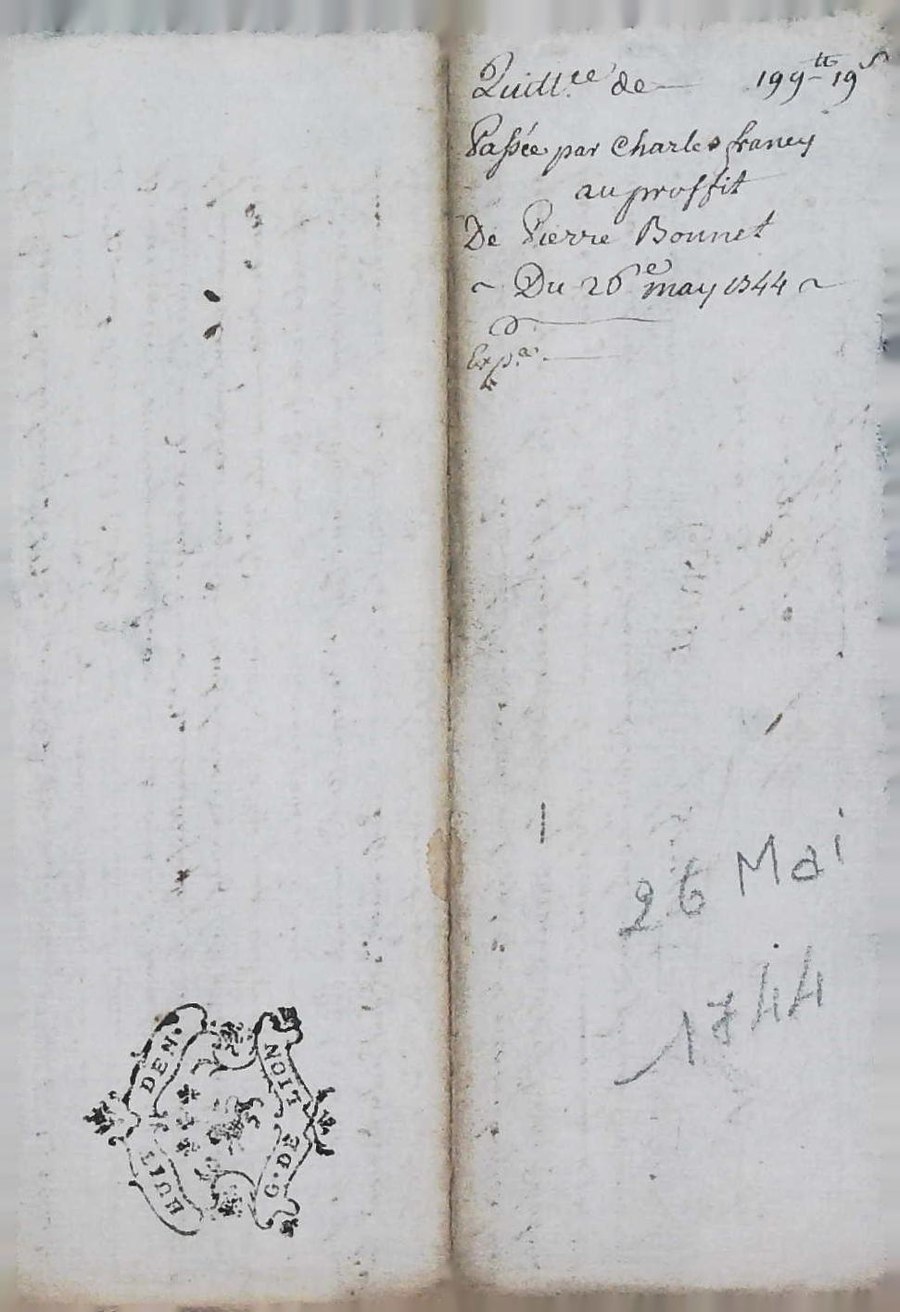 Quitt.ce de 199tt 19s
Passée par Charles francy
au proffit
De Pierre Bonnet
~ Du 26e may 1744 ~
Exp.
26 Mai
1744
G. DE NOIT
HUIT DEN.